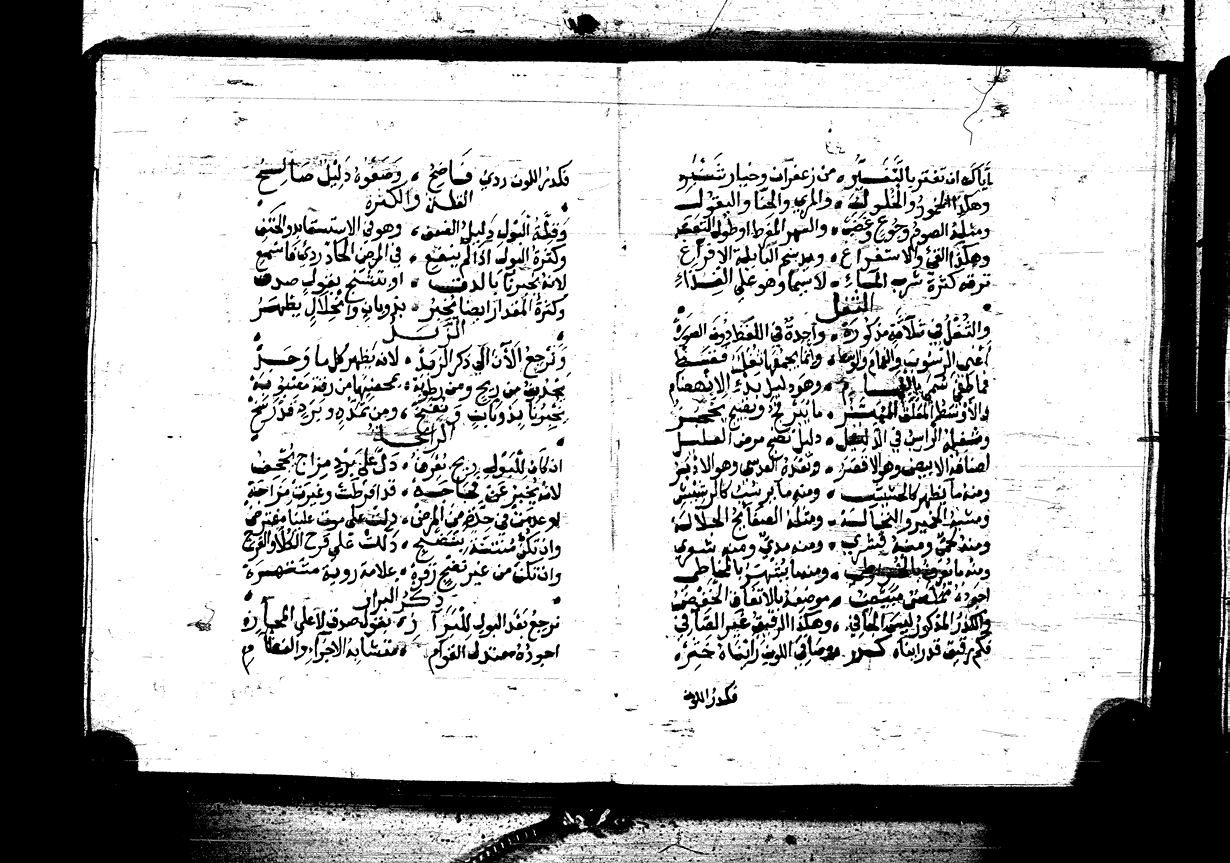 اياك ان تغتر بالتغير من زعفران وخيار شنبر
وهكذا الخمور والخلوف والمري والحنا والبقول
ومثله الصوم وجوع وغضب والسهر المفرط او طول التعب
وهكذا القيء والاستفراغ
ترقه كثرة شرب الماء لا سيما وهو علي الغذاء
الثفل
والثفل في ثلاثة مذكورة واحدة في اللفظ دون الصورة
أعني الرسوب والغمام والوسط وانما يجمعها ثفل فقط
فما طفي سمي بالغمام وهو دليل بدء الانهضام
والاوسط المعلق المهتز ما بنزج ونضج يخبر
وشغل الراس في الدليل دليل نضج مرض العليل
اصنافه الابيض وهو الافضل وبعده العدسي وهو الاد
ومنه ما يظهر كالخشب ومنه ما يرسب كالرشيش
ومشبه الخبز والنخالة ومثله الصفايح الحلالة
ومنه لحمي ومنه قشري ومنه مدي ومنه شعري
ومنه ما يعرف بالخراطي ومنه ما يشتهر بالمخاطي
اجوده مملس مبيض موضعه بالاتفاق الخفض
والكدر المذكور ليس الخافي وهكذا الرقيق غير الصافي
فكم رقيق قد رايناه كدر وصافي اللون رايناه خثر
فكدر اللون
فكدر اللون ردي فاضح وصفوه دليل صالح
القلة والكثرة
وقلة البول دليل الضعف وهو في الاستسقا به والحتف
وكثرة البول اذا لم ينقع في المرض الحاد ردي فاسمع
لانه يخبرنا بالدق او تشنج بقول صدق
وكثرة المقدار ايضا يخبر بذوبان وانحلال يظهر
الزبد
ونرجع الآن الي ذكر الزبد لانه يظهر كل ما وجد
يحدث من ريح ومن رطوبة
يخبرنا بذوبان ونضج ومن تمدد وبرد قد رسخ
الرائحة
ان كان للبول ريح يعرف دل علي برد مزاج
لانه يخبر عن فجاجه قد افرطت وغيرت مزاجه
لو عدمت في حادث من المرض دلت علي موت علينا معترض
وان تكن منتنة بنضج دلت علي قرح الكلا والفرج
وان تكن من غير نضج زفرة علامة رديه مشتهرة
ذكر البراز
نرجع بعد البول للبراز بقول صدق لا علي المجاز
اجوده معتدل القوام متشابه الاجزاء